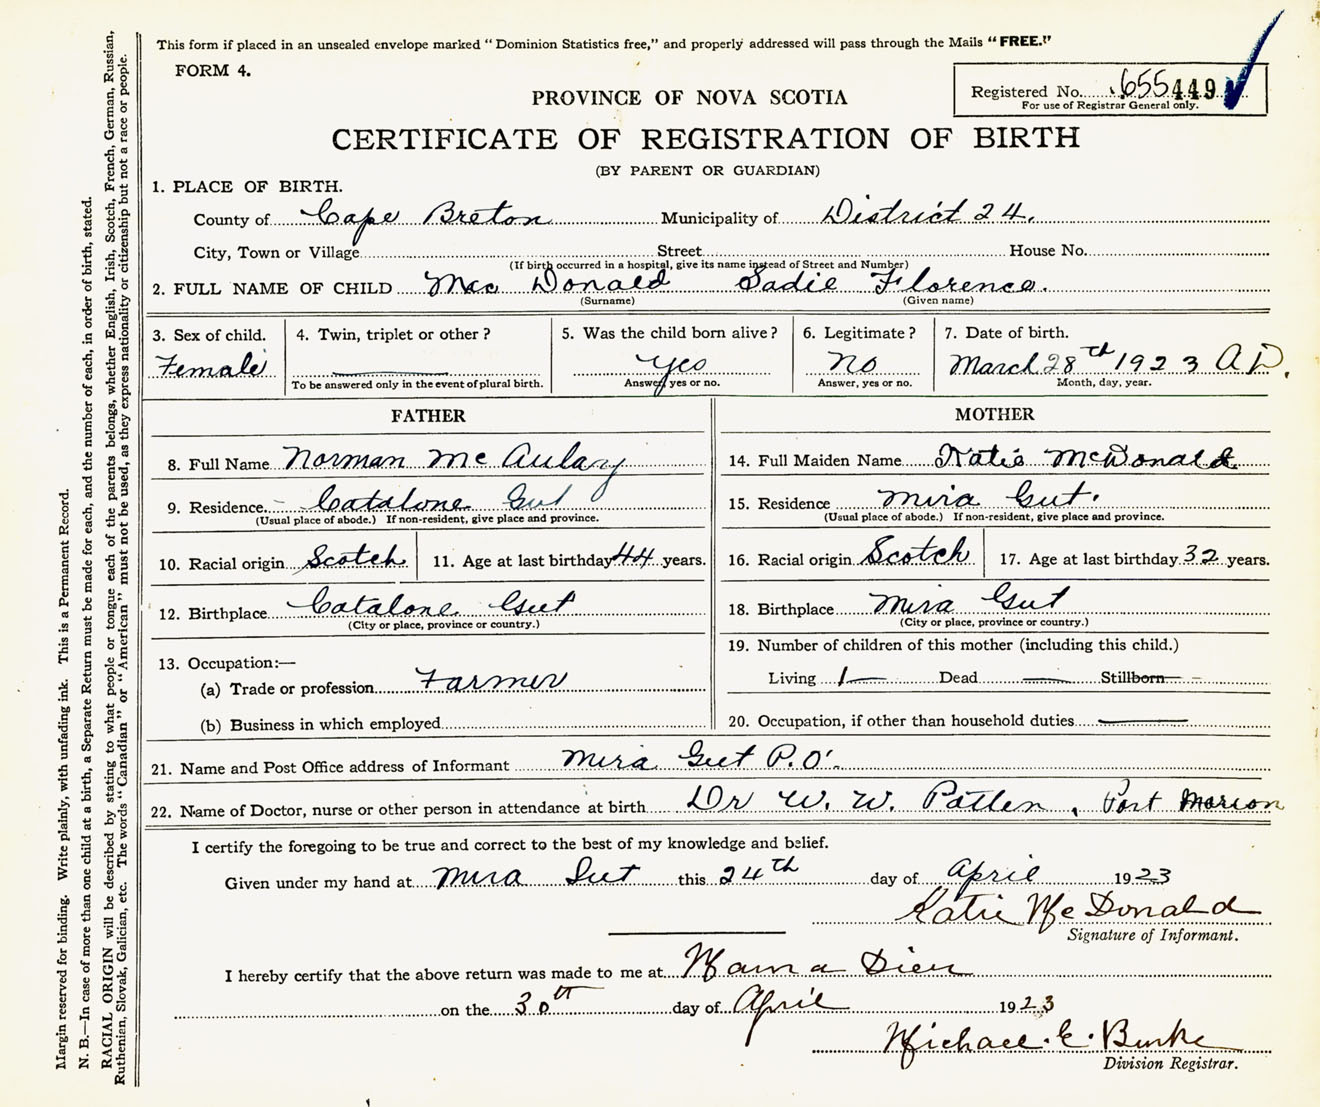 This form if placed in an unsealed envelope marked "Dominion Statistics free," and properly addressed will pass through the Mails "FREE."
FORM 4.
Registered No. 655449
For use of Registrar General only.
PROVINCE OF NOVA SCOTIA
CERTIFICATE OF REGISTRATION OF BIRTH
(BY PARENT OR GUARDIAN)
1. PLACE OF BIRTH.
County of Cape Breton Municipality of District 24.
City, Town or Village Street House No.
(If birth occurred in a hospital, give its name instead of Street and Number)
2. FULL NAME OF CHILD Mac Donald Sadie Florence.
(Surname) (Given name)
3. Sex of child. 4. Twin, triplet or other? 5. Was the child born alive? 6. Legitimate? 7. Date of birth.
Female yes No March 28th 1923 A D.
To be answered only in the event of plural birth. Answer, yes or no. Answer, yes or no. Month, day, year.
FATHER MOTHER
8. Full Name Norman Mc Aulay 14. Full Maiden Name Katie McDonald
9. Residence. Catalone Gut 15. Residence Mira Gut.
(Usual place of abode.) If non-resident, give place and province. (Usual place of abode.) If non-resident, give place and province.
10. Racial origin Scotch 11. Age at last birthday 44 years. 16. Racial origin Scotch 17. Age at last birthday 32 years.
12. Birthplace Catalone Gut 18. Birthplace Mira Gut
(City or place, province or country.) (City or place, province or country.)
19. Number of children of this mother (including this child.)
13. Occupation:—
(a) Trade or profession Farmer Living 1 Dead Stillborn
(b) Business in which employed 20. Occupation, if other than household duties
21. Name and Post Office address of Informant Mira Gut P.O.
22. Name of Doctor, nurse or other person in attendance at birth Dr W. W. Patten, Port Morion
I certify the foregoing to be true and correct to the best of my knowledge and belief.
Given under my hand at Mira Gut this 24th day of April 1923
Katie Mc Donald
Signature of Informant.
I hereby certify that the above return was made to me at
on the 30th day of April 1923
Michael. E. Burke
Division Registrar.
Margin reserved for binding. Write plainly, with unfading ink. This is a Permanent Record.
N. B.—In case of more than one child at a birth, a Separate Return must be made for each, and the number of each, in order of birth, stated.
RACIAL ORIGIN will be described by stating to what people or tongue each of the parents belongs, whether English, Irish, Scotch, French, German, Russian,
Ruthenian, Slovak, Galician, etc. The words "Canadian" or "American" must not be used, as they express nationality or citizenship but not a race or people.